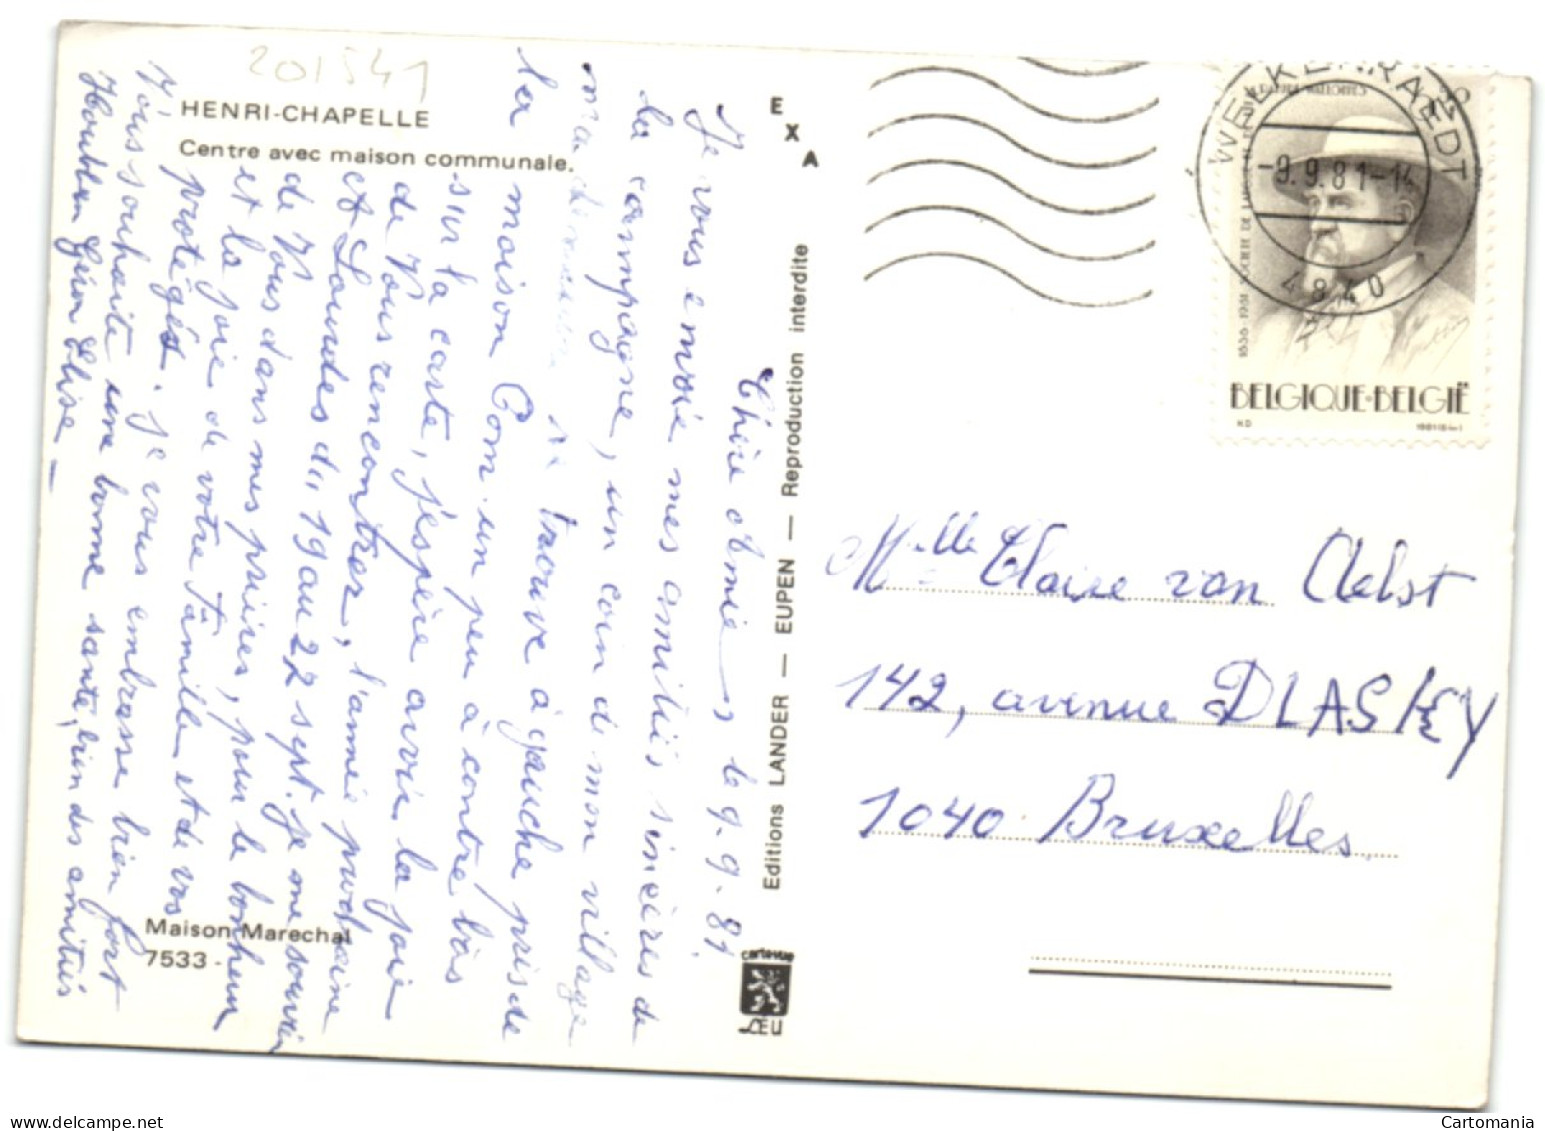 201541
HENRI-CHAPELLE
Centre avec maison communale.
Chère Amie, le 9.9.81
Je vous envoie mes amitiés sincères de
la campagne, un coin de mon village
ma trouve à gauche près de
la maison Com. un peu à contre bas
sur la carte, j'espère avoir la joie
de Vous rencontrer, l'année prochaine
et Lourdes du 19 au 22 sept. je me souvien
de Vous dans mes prières, pour le bonheur
et la joie de votre famille et de vos
protégés. je vous embrasse bien fort
Vous souhaite une bonne santé, bien des amitiés
Elise _
Maison Marechal
7533 -
E
X
A
Editions LANDER — EUPEN — Reproduction interdite
cartovue
LCEU
WELKENRAEDT
-9.9.81-14
4840
1836-1981
BELGIQUE-BELGIË
Melle Claire van Aelst
142, avenue DLASKEY
1040 Bruxelles.
Cartomania